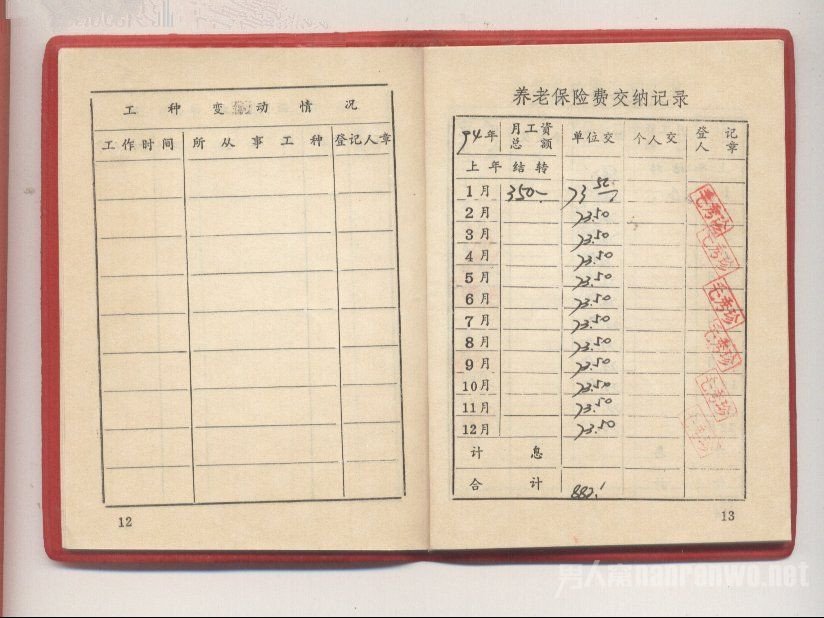 工种变动情况
工作时间 所从事工种 登记人章
12
养老保险费交纳记录
94年 月工资总额 单位交 个人交 登记人章
上年结转
1月 350- 73.50
2月 73.50
3月 73.50
4月 73.50
5月 73.50
6月 73.50
7月 73.50
8月 73.50
9月 73.50
10月 73.50
11月 73.50
12月 73.50
计息
合计 882.-
毛秀珍
毛秀珍
毛秀珍
毛秀珍
毛秀珍
毛秀珍
13
男人窝nanranwo.net